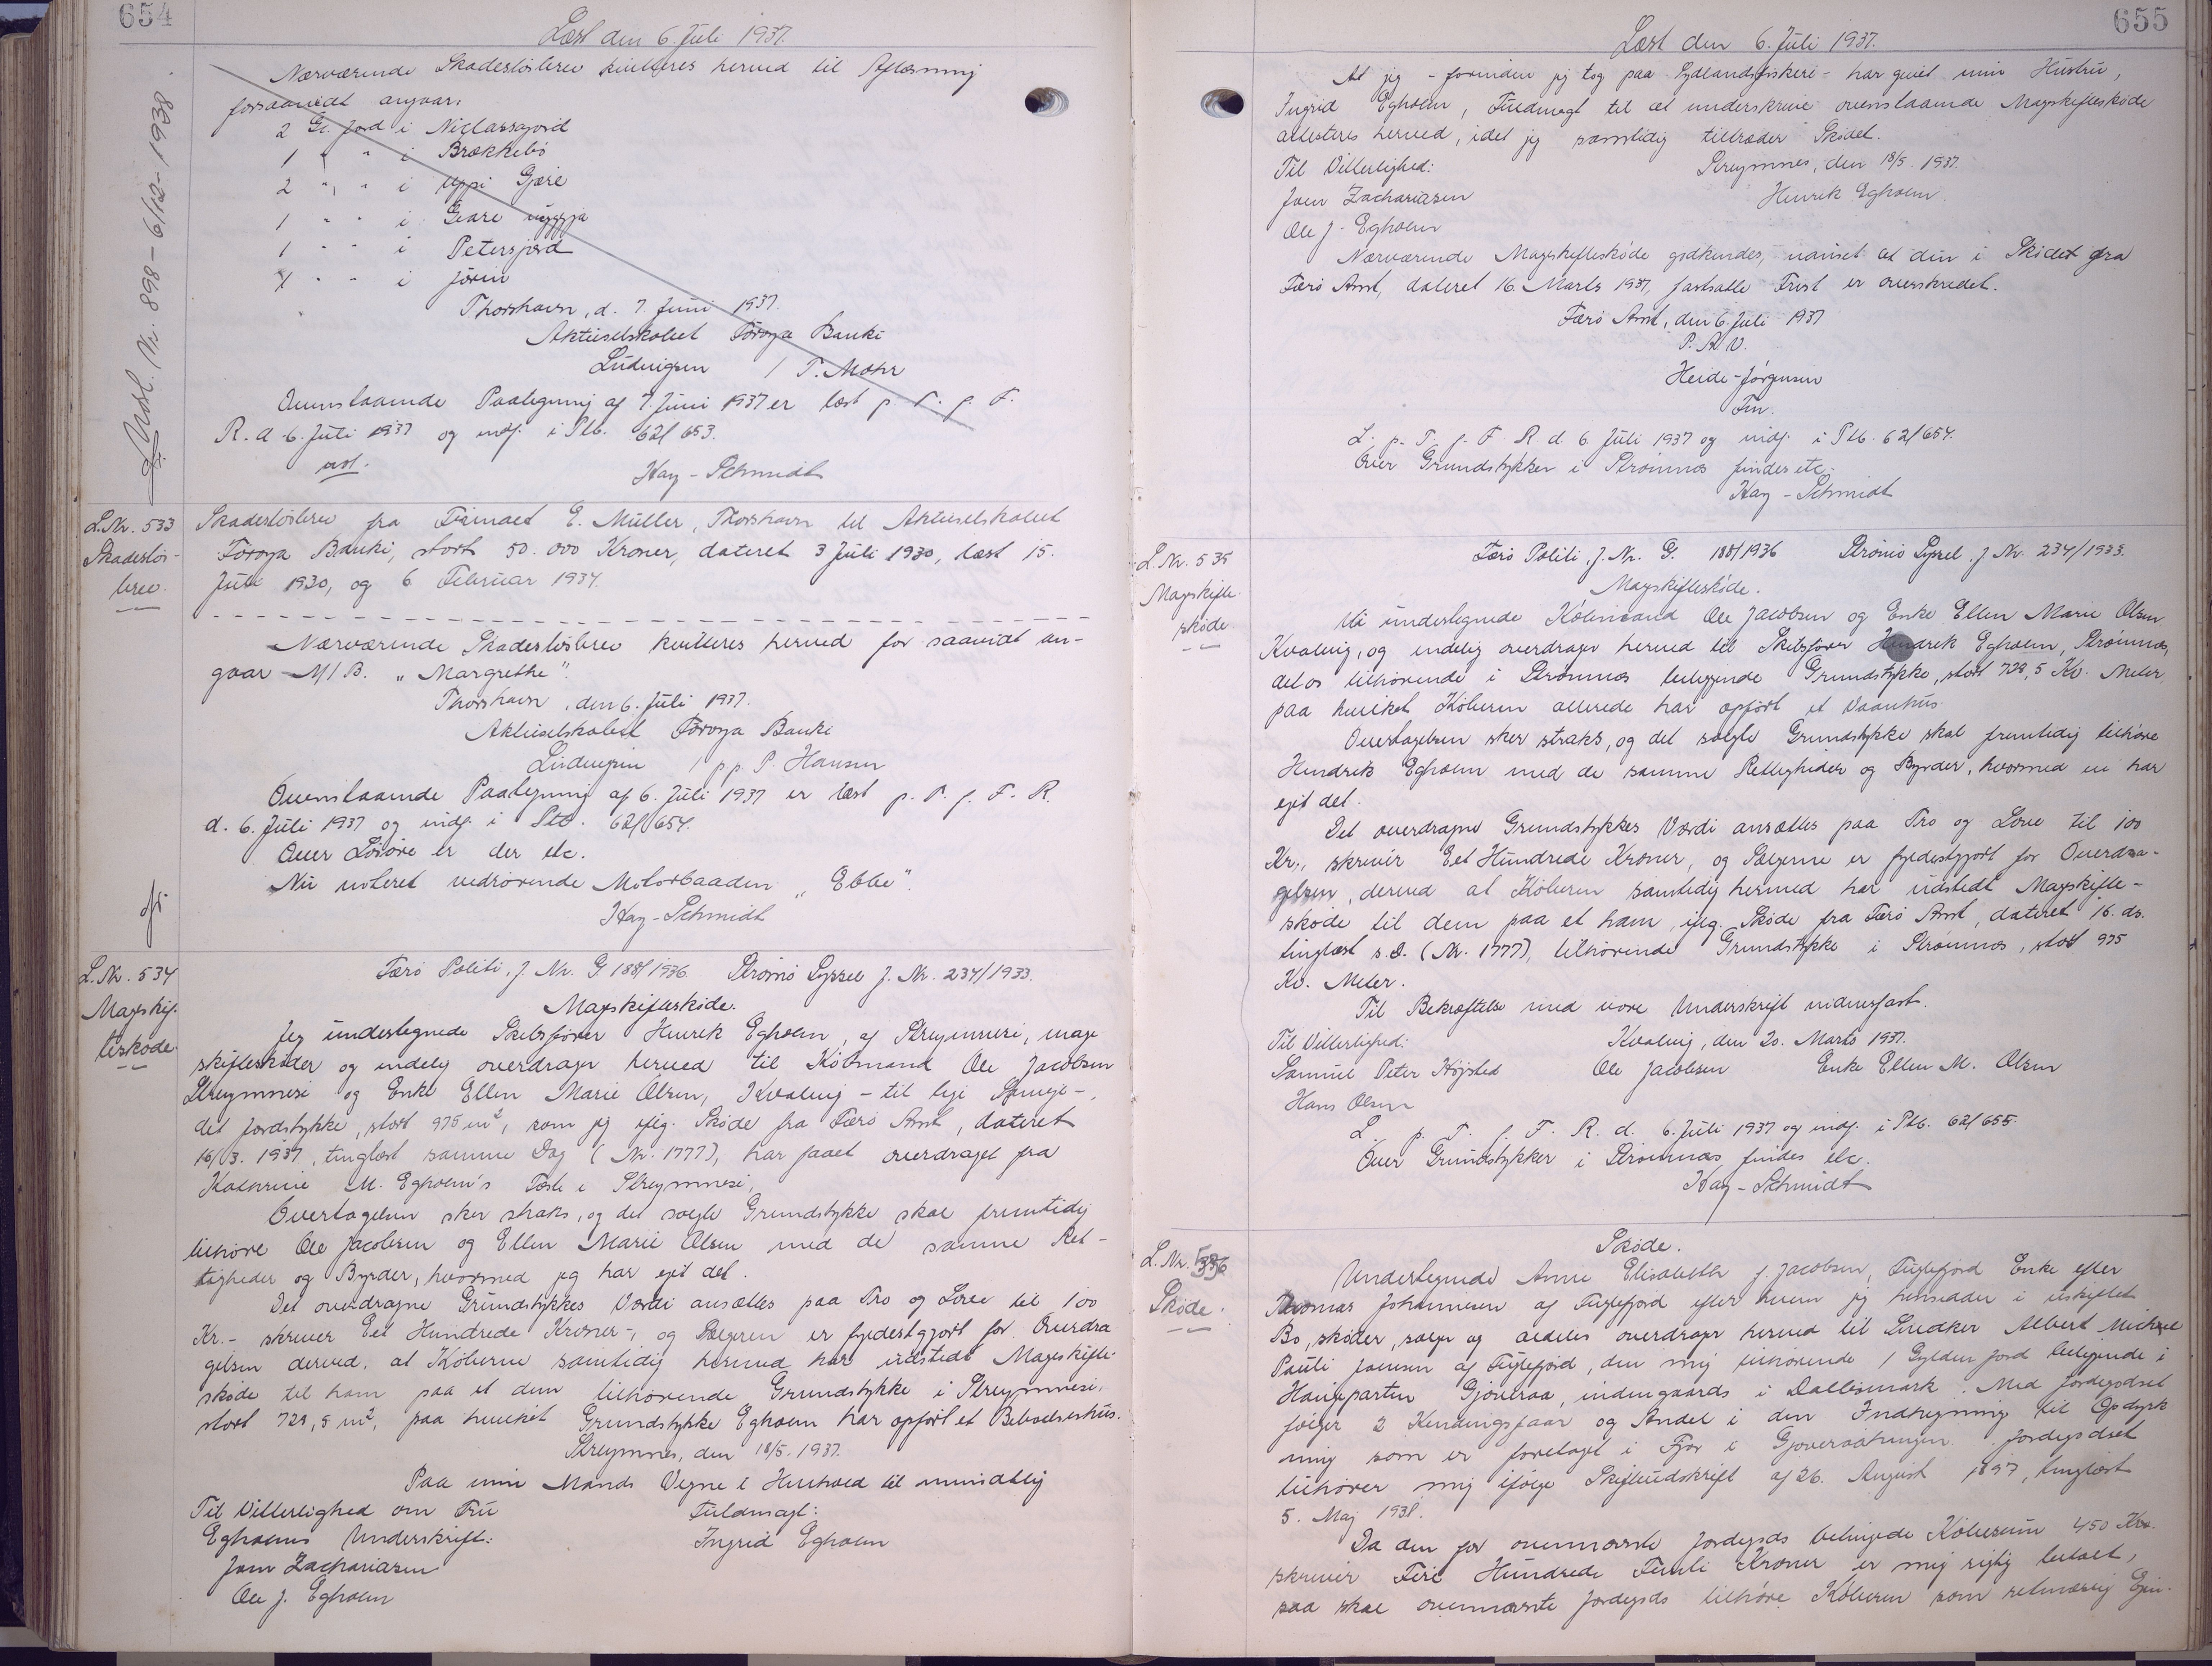 654
Læst den 6. Juli 1937.
Nærværende Skadesløsbrev kvitteres herved til Aflæsning
forsaavidt angaar:
2 Gl. Jord i Niclassajord
1 " " i Brækkebø
2 " " i Uppi Gjære
1 " " i Geare
1 " " i Petersjord
" " i Jørin
Thorshavn, d. 7. Juni 1937.
Aktieselskabet Føroya Banki
Ludvigsen / T. Mohr
Ovenstaaende Paategning af 7. Juni 1937 er læst p. T. f. F.
R. d. 6. Juli 1937 og indf. i Ptb. 62/653.
Kay-Schmidt
Udsl. Nr. 898-6/12-1938.
L.Nr. 533
Skadesløs-
brev.
Skadesløsbrev fra Firmaet E. Müller, Thorshavn til Aktieselskabet
Føroya Banki, stort 50.000 Kroner, dateret 3 Juli 1930, læst 15.
Juli 1930, og 6. Februar 1934.
Nærværende Skadesløsbrev kvitteres herved for saavidt an-
gaar M/B. "Margrethe".
Thorshavn, den 6. Juli 1937.
Aktieselskabet Føroya Banki
Ludvigsen / pp. P. Hansen
Ovenstaaende Paategning af 6. Juli 1937 er læst p. T. f. F. R.
d. 6. Juli 1937 og indf. i Ptb. 62/654.
Over Løsøre er der etc.
Nu noteret vedrørende Motorbaaden "Ebbe".
Kay-Schmidt
L.Nr. 534
Mageskif-
teskøde.
Færø Politi, J. Nr. G. 188/1936. Strømø Syssel J. Nr. 234/1933.
Mageskifteskøde.
Jeg undertegnede Skibsfører Henrik Egholm, af Streymnesi, mage
skifteskøder og endelig overdrager herved til Købmand Ole Jacobsen
Streymnesi og Enke Ellen Marie Olsen, Kvalvig - til lige Sameje -,
det Jordstykke, stort 975 m², som jeg iflg. Skøde fra Færø Amt, dateret
16/3. 1937, tinglæst samme Dag (Nr. 1777), har faaet overdraget fra
Kathrine M. Egholm's Fæste i Streymnesi,
Overtagelsen sker straks, og det solgte Grundstykke skal fremtidig
tilhøre Ole Jacobsen og Ellen Marie Olsen med de samme Ret-
tigheder og Byrder, hvormed jeg har ejet det.
Det overdragne Grundstykkes Værdi ansættes paa Tro og Love til 100
Kr.- skriver Eet Hundrede Kroner-, og Sælgeren er fyldestgjort for Overdra
gelsen derved, at Køberne samtidig hermed har udstedt Mageskifte-
skøde til ham paa et dem tilhørende Grundstykke i Streymnesi,
stort 728,5 m², paa hvilket Grundstykke Egholm har opført et Beboelseshus.
Streymnes, den 18/5. 1937.
Paa min Mands Vegne i Henhold til mundtlig
Til Vitterlighed om Fru Fuldmagt:
Egholms Underskrift: Ingrid Egholm
Joen Zachariasen
Ole J. Egholm
655
Læst den 6. Juli 1937.
At jeg - forinden jeg tog paa Sydlandsfiskeri - har givet min Hustru,
Ingrid Egholm, Fuldmagt til at underskrive ovenstaaende Mageskifteskøde
attesteres herved, idet jeg samtidig tiltræder Skødet.
Til Vitterlighed: Streymnes, den 18/5. 1937.
Joen Zachariasen Henrik Egholm.
Ole J. Egholm
Nærværende Mageskifteskøde godkendes, uanset at den i Skødet fra
Færø Amt, dateret 16. Marts 1937, fastsatte Frist er overskredet.
Færø Amt, den 6. Juli 1937
P. A. V.
Heide-Jørgensen
Fm.
L. p. T. f. F. R. d. 6. Juli 1937 og indf. i Ptb. 62/654.
Over Grundstykker i Strømnæs findes etc.
Kay-Schmidt
L.Nr. 535
Mageskifte-
skøde.
Færø Politi, J. Nr. G. 188/1936 Strømø Syssel, J Nr. 234/1933.
Mageskifteskøde.
Vi undertegnede Købmand Ole Jacobsen og Enke Ellen Marie Olsen
Kvalvig, og endelig overdrager herved til Skibsfører Hendrik Egholm, Strømnæs,
det os tilhørende i Strømnæs beliggende Grundstykke, stort 728,5 Kv. Meter,
paa hvilket Køberen allerede har opført et Vaanhus.
Overtagelsen sker straks, og det solgte Grundstykke skal fremtidig tilhøre
Hendrik Egholm med de samme Rettigheder og Byrder, hvormed vi har
ejet det.
Det overdragne Grundstykkes Værdi ansættes paa Tro og Love til 100
Kr., skriver Eet Hundrede Kroner, og Sælgerne er fyldestgjort for Overdra-
gelsen, derved at Køberen samtidig hermed har udstedt Mageskifte-
skøde til dem paa et ham, iflg. Skøde fra Færø Amt, dateret 16. ds.
tinglæst s.D. (Nr. 1777), tilhørende Grundstykke i Strømnæs, stort 975
Kv. Meter.
Til Bekræftelse med vore Underskrift vidnesfast.
Til Vitterlighed: Kvalvig, den 20. Marts 1937.
Samuel Peter Højsted Ole Jacobsen Enke Ellen M. Olsen
Hans Olsen
L. p. T. f. F. R. d. 6. Juli 1937 og indf. i Ptb. 62/655.
Over Grundstykker i Strømnæs findes etc.
Kay-Schmidt
L.Nr. 536
Skøde.
Skøde.
Undertegnede Anne Elisabeth f. Jacobsen, Fuglefjord Enke efter
Thomas Johannesen af Fuglefjord efter hvem jeg hensidder i uskiftet
Bo, skøder, sælger og aldeles overdrager herved til Snedker Albert Michael
Pauli Joensen af Fuglefjord, den mig tilhørende 1 Gylden Jord beliggende i
Haugeparten Gjøveraa, indengaards i Dallismark. Med Jordegodset
følger 2 Kendingsfaar og Andel i den Indhegning til Opdyrk
ning som er foretaget i Fjor i Gjøveraatungen. Jordegodset
tilhører mig ifølge Skifteudskrift af 26. August 1897, tinglæst
5. Maj 1938.
Da den for ovennævnte Jordegods betingede Købesum 450 Kr.
skriver Fire Hundrede Femti Kroner er mig rigtig betalt,
saa skal ovennævnte Jordegods tilhøre Køberen som retmæssig Ejen-